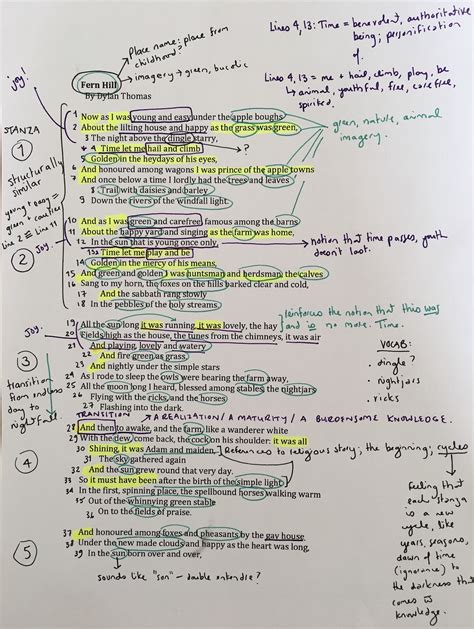 Place name: place from childhood?
imagery → green, bucolic
joy!
Lines 4, 13: Time = benevolent, authoritative being; personification of.
Lines 4, 13 = me + hail, climb, play, be
↳ animal, youthful, free, carefree, spirited.
green, nature, animal imagery.
Fern Hill
By Dylan Thomas
STANZA
1
structurally similar
young + easy = green + carefree
Line 2 & Line 11
1 Now as I was young and easy under the apple boughs
2 About the lilting house and happy as the grass was green,
3 The night above the dingle starry,
4 Time let me hail and climb → ?
5 Golden in the heydays of his eyes,
6 And honoured among wagons I was prince of the apple towns
7 And once below a time I lordly had the trees and leaves
8 Trail with daisies and barley
9 Down the rivers of the windfall light.
2
joy.
10 And as I was green and carefree, famous among the barns
11 About the happy yard and singing as the farm was home,
12 In the sun that is young once only,
13 Time let me play and be
14 Golden in the mercy of his means,
15 And green and golden I was huntsman and herdsman, the calves
16 Sang to my horn, the foxes on the hills barked clear and cold,
17 And the sabbath rang slowly
18 In the pebbles of the holy streams.
notion that time passes, youth doesn't last.
reinforces the notion that this was and is no more. Time.
joy:
3
transition from endless day to nightfall
19 All the sun long it was running, it was lovely, the hay
20 Fields high as the house, the tunes from the chimneys, it was air
21 And playing, lovely and watery
22 And fire green as grass.
23 And nightly under the simple stars
24 As I rode to sleep the owls were bearing the farm away,
25 All the moon long I heard, blessed among stables, the nightjars
26 Flying with the ricks, and the horses
27 Flashing into the dark.
VOCAB:
• dingle?
• nightjars
• ricks
TRANSITION → A REALIZATION / A MATURITY / A BURDENSOME KNOWLEDGE.
4
28 And then to awake, and the farm, like a wanderer white
29 With the dew, come back, the cock on his shoulder: it was all
30 Shining, it was Adam and maiden,
References to religious story; the beginning; cycles
31 The sky gathered again
32 And the sun grew round that very day.
33 So it must have been after the birth of the simple light
34 In the first, spinning place, the spellbound horses walking warm
35 Out of the whinnying green stable
36 On to the fields of praise.
feeling that each stanza is a new cycle, like years, seasons, dawn of time (ignorance) to the darkness that comes w knowledge.
5
37 And honoured among foxes and pheasants by the gay house
38 Under the new made clouds and happy as the heart was long,
39 In the sun born over and over,
sounds like "son" - double entendre?